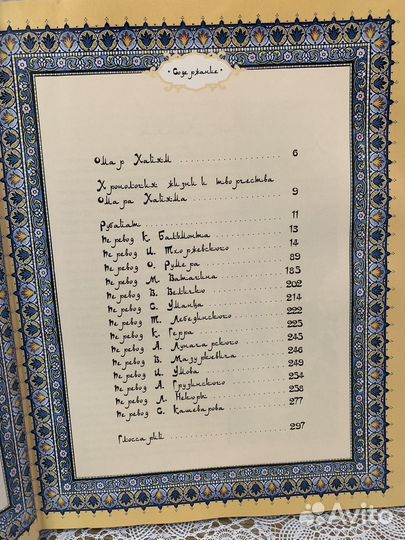 Содержание
Омар Хайям 6
Хронология жизни и творчества
Омара Хайяма 9
Рубайат 11
Перевод К. Бальмонта 13
Перевод И. Тхоржевского 14
Перевод О. Румера 89
Перевод М. Ватагина 185
Перевод В. Величко 202
Перевод С. Уманца 214
Перевод Т. Лебединского 222
Перевод К. Герра 225
Перевод А. Луначарского 245
Перевод В. Мазуркевича 246
Перевод И. Умова 249
Перевод А. Грузинского 254
Перевод Л. Некоры 258
Перевод С. Кашеварова 277
Глоссарий 297
Avito